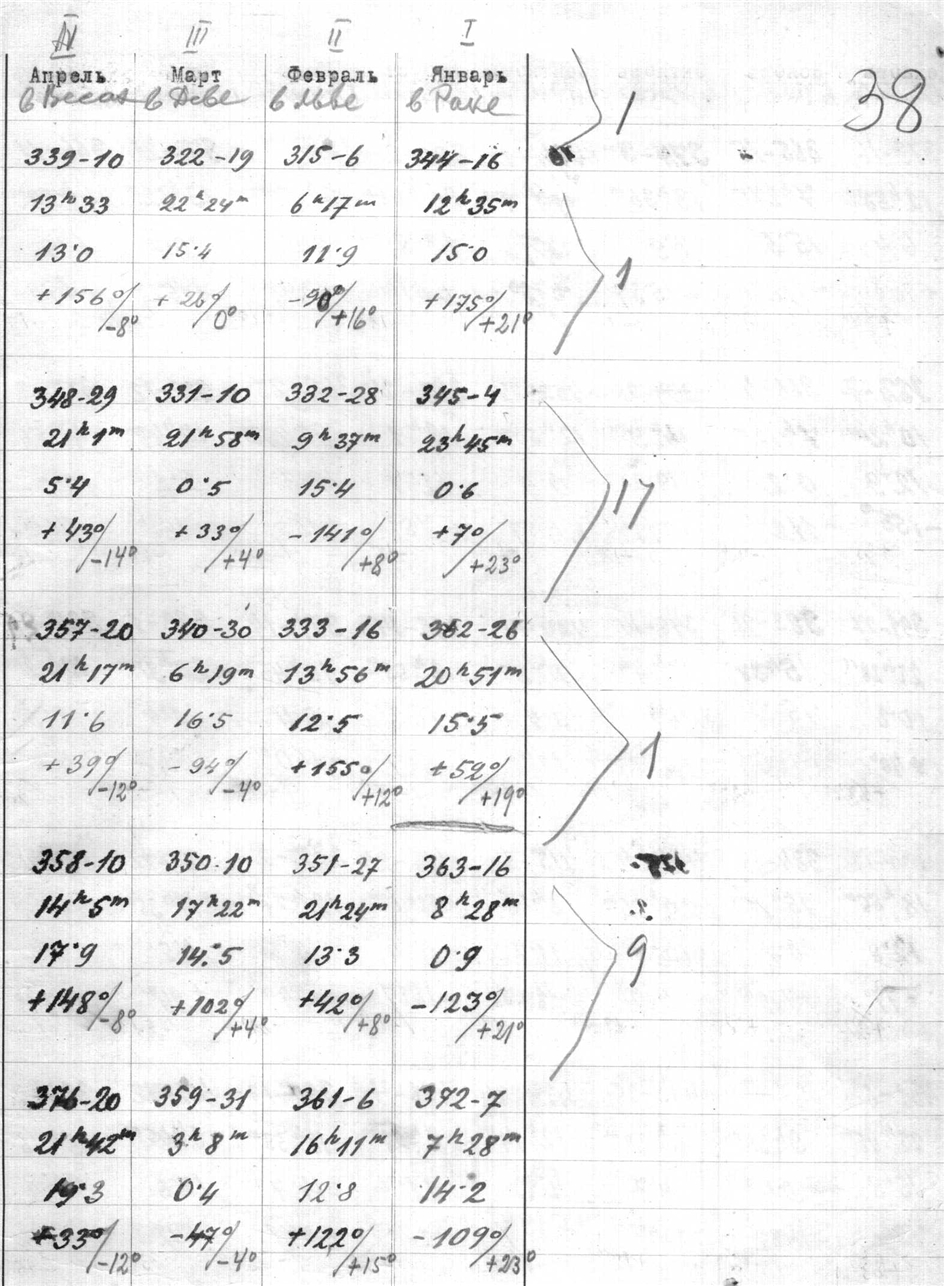 IV III II I
Апрель Март Февраль Январь
в Весах в Деве в Льве в Раке
38
1
339-10 322-19 315-6 344-16
13ʰ33 22ʰ24ᵐ 6ʰ17ᵐ 12ʰ35ᵐ
13·0 15·4 11·9 15·0
+156°/-8° +26°/0° -90°/+16° +175°/+21°
1
348-29 331-10 332-28 345-4
21ʰ1ᵐ 21ʰ58ᵐ 9ʰ37ᵐ 23ʰ45ᵐ
5·4 0·5 15·4 0·6
+43°/-14° +33°/+4° -141°/+8° +7°/+23°
17
357-20 340-30 333-16 362-26
21ʰ17ᵐ 6ʰ19ᵐ 13ʰ56ᵐ 20ʰ51ᵐ
11·6 16·5 12·5 15·5
+39°/-12° -94°/-4° +155°/+12° +52°/+19°
1
358-10 350-10 351-27 363-16
14ʰ5ᵐ 17ʰ22ᵐ 21ʰ24ᵐ 8ʰ28ᵐ
17·9 14·5 13·3 0·9
+148°/-8° +102°/+4° +42°/+8° -123°/+21°
9
376-20 359-31 361-6 372-7
21ʰ42ᵐ 3ʰ8ᵐ 16ʰ11ᵐ 7ʰ28ᵐ
19·3 0·4 12·8 14·2
+33°/-12° -47°/-4° +122°/+15° -109°/+23°